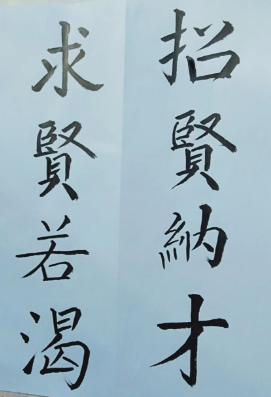 招賢納才
求賢若渴